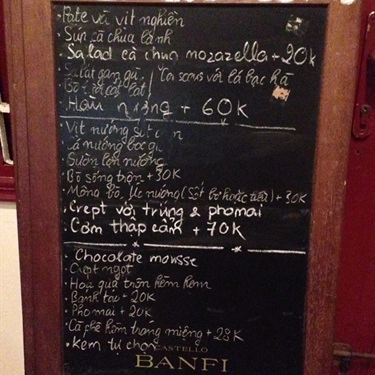 Pate và vịt nghiền
Súp cà chua lạnh
Salad cà chua mozazella + 20k
Salat gan gà
cừu sous với lá bạc hà
Bò tái
Hàu nướng + 60K
Vịt nướng sốt cam
Cá nướng bọc giấy
Sườn lợn nướng
Bò sống trộn + 30K
Mông bò, Úc nướng (Sốt bơ hoặc tiêu) + 30K
Crept với trứng & phomai
Cơm thập cẩm + 70K
Chocolate mousse
Crept ngọt
Hoa quả trộn kèm kem
Bánh táo + 20K
Phomai + 20K
Cà phê kèm tráng miệng + 28K
Kem tự chọn
CASTELLO
BANFI